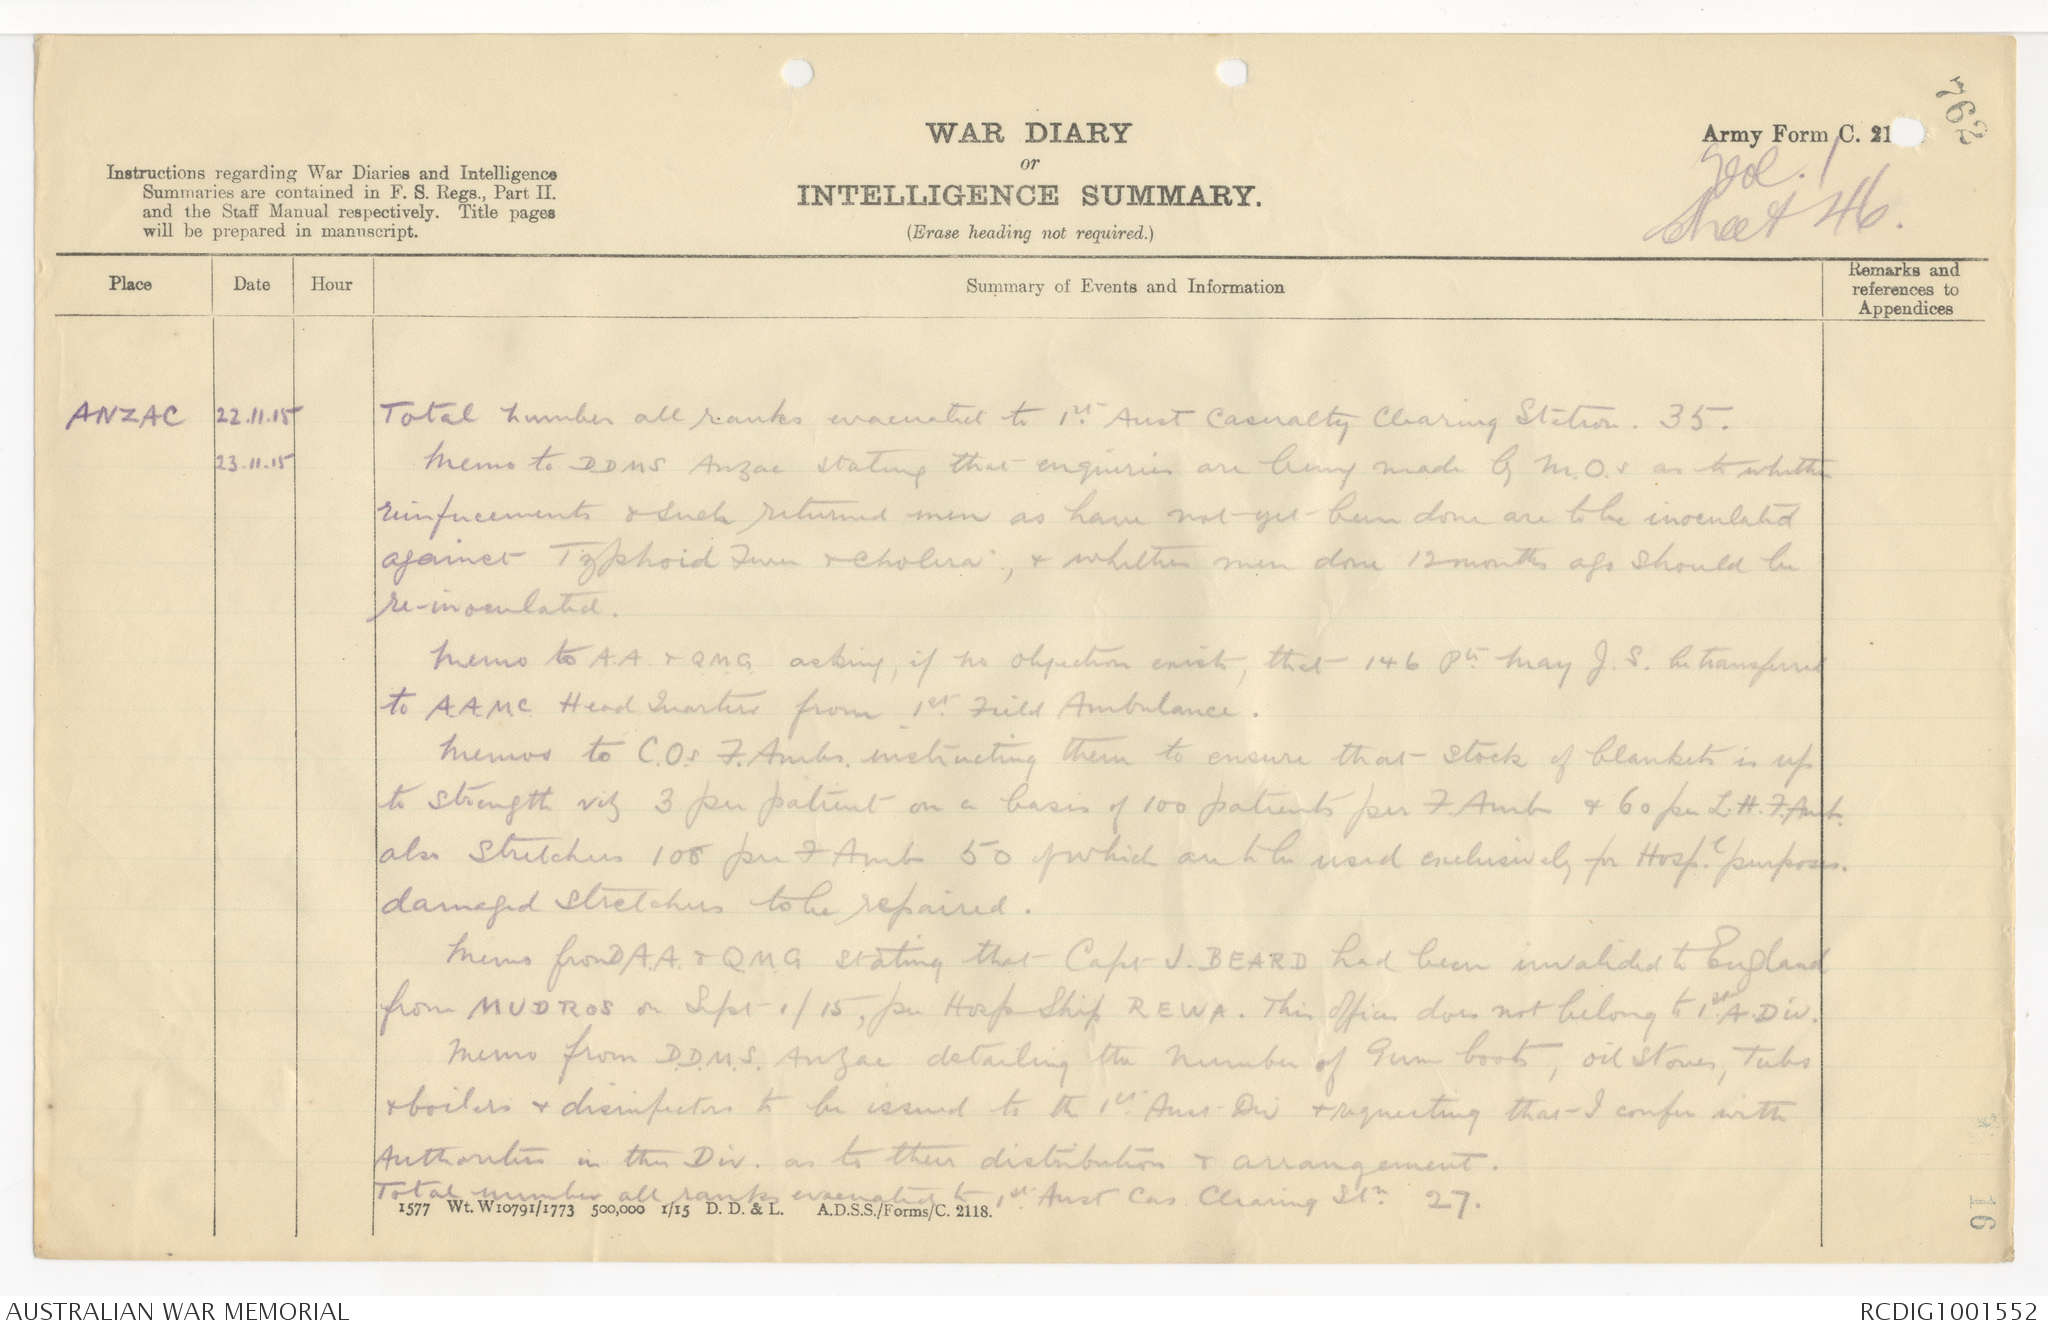 WAR DIARY
or
INTELLIGENCE SUMMARY.
(Erase heading not required.)
Instructions regarding War Diaries and Intelligence
Summaries are contained in F. S. Regs., Part II.
and the Staff Manual respectively. Title pages
will be prepared in manuscript.
Army Form C. 21
762
Vol. 1
Sheet 46.
Place
Date
Hour
Summary of Events and Information
Remarks and
references to
Appendices
ANZAC 22.11.15 Total number all ranks evacuated to 1st Aust Casualty Clearing Station. 35.
23.11.15 Memo to DDMS Anzac stating that enquiries are being made by M.O.s as to whether
reinfucements & such returned men as have not yet been done are to be inoculated
against Typhoid Fever & Cholera, & whether men done 12 months ago should be
re-inoculated.
Memo to A.A. & Q.M.G. asking, if no objection exists, that 146 Pte May J. S. be transferred
to A.A.M.C. Head Quarters from 1st Field Ambulance.
Memos to C.O.s F. Ambs. instructing them to ensure that stock of blankets is up
to strength viz 3 per patient on a basis of 100 patients per F. Amb & 60 per L.H.F. Amb.
also stretchers 100 per F Amb 50 of which are to be used exclusively for Hosp.l purposes.
damaged stretchers to be repaired.
Memo from D.A.A. & Q.M.G stating that Capt J. BEARD had been invalided to England
from MUDROS on Sept 1/15, per Hosp Ship REWA. This officer does not belong to 1st A. Div.
Memo from D.D.M.S. Anzac detailing the number of Gum boots, oil stoves, Tubs
& boilers & disinfectors to be issued to th 1st Aus Div & requesting that I confer with
Authorities in this Div. as to their distribution & arrangement.
Total number all ranks evacuated to 1st Aust Cas Clearing Stn. 27.
1577 Wt. W10791/1773 500,000 1/15 D. D. & L. A.D.S.S./Forms/C. 2118.
16
AUSTRALIAN WAR MEMORIAL
RCDIG1001552